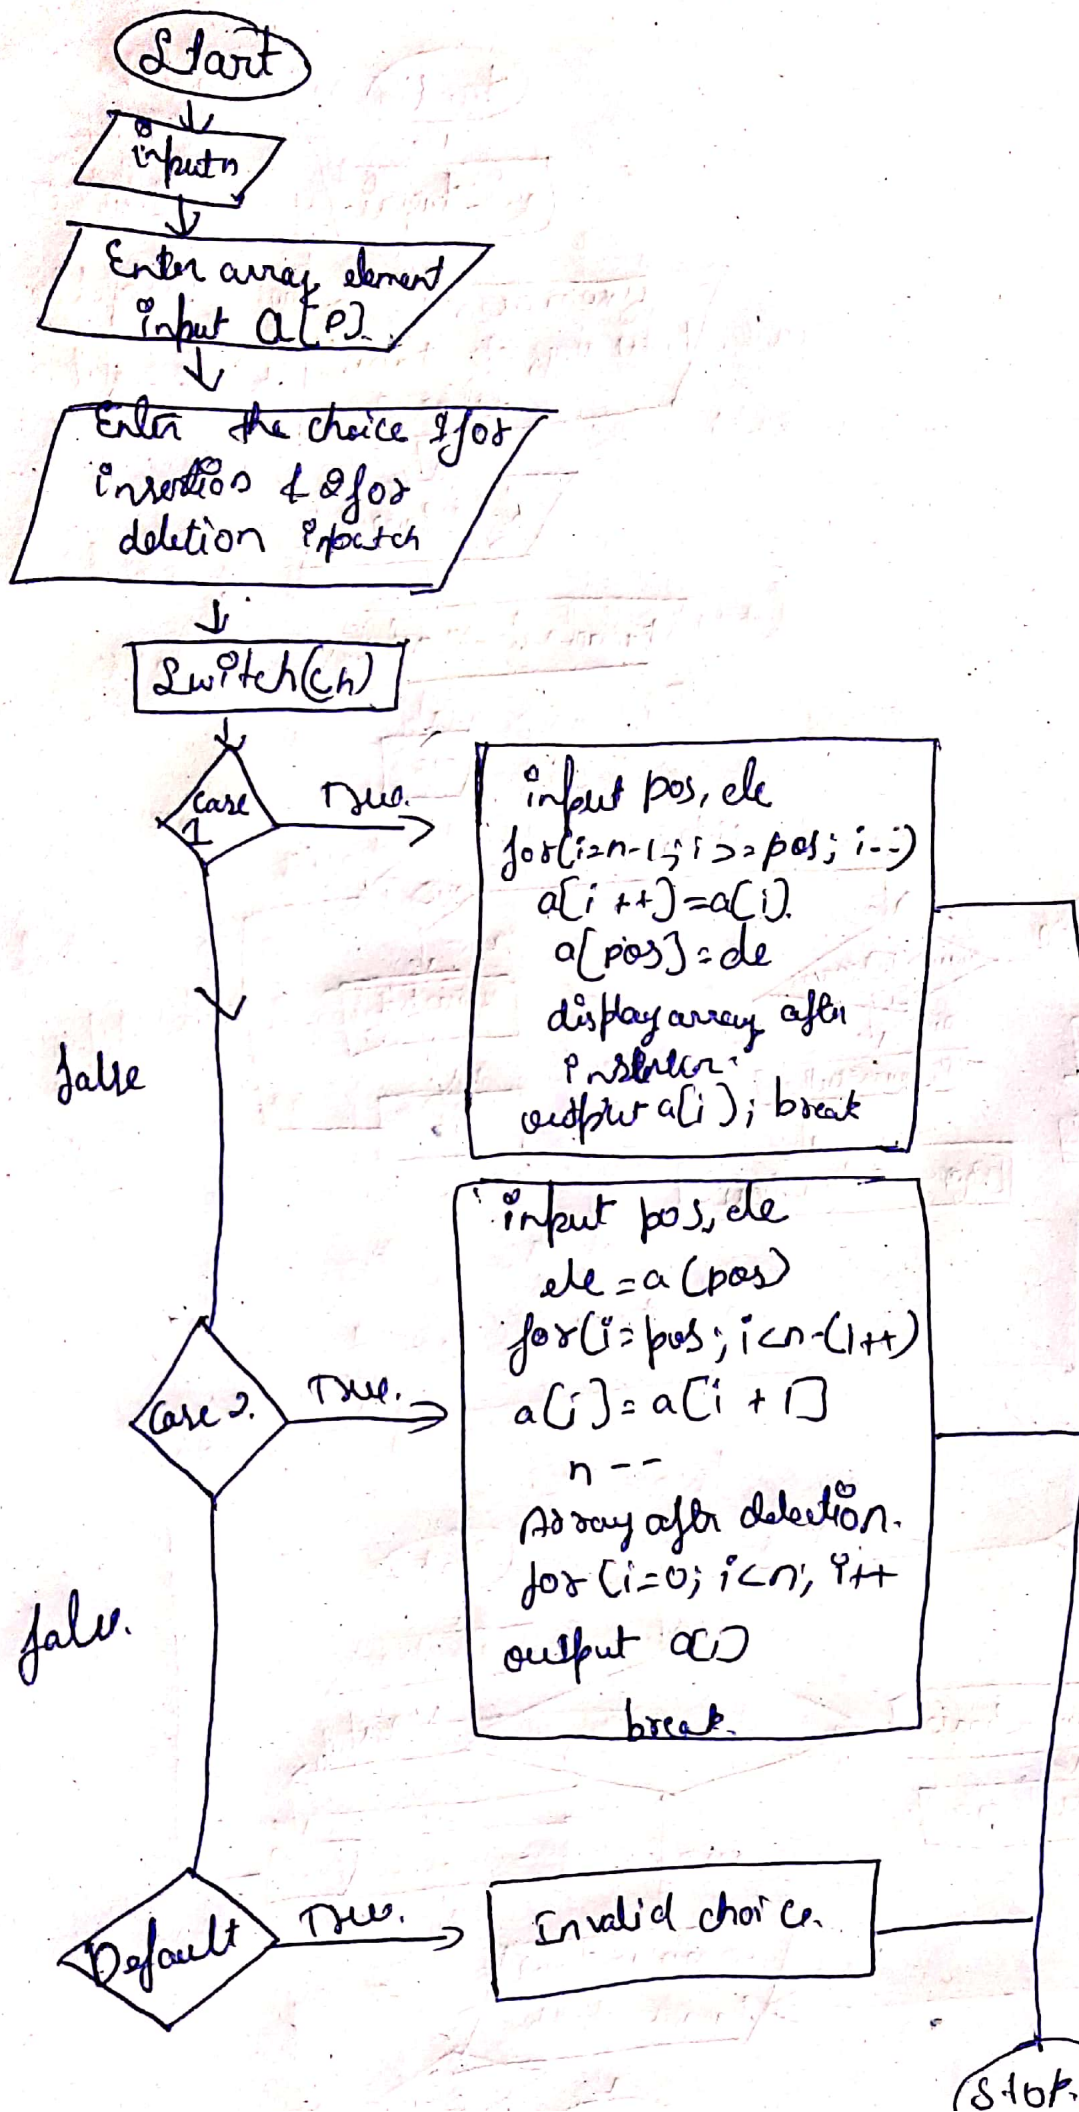 Start
input n
Enter array element
input a[P].
Enter the choice 1 for
insertion & 2 for
deletion input ch
Switch(ch)
case
1
True.
input pos, ele
for(i=n-1; i>=pos; i--)
a[i++]=a[i].
a[pos]=ele
display array after
output a[i]; break
false
input pos, ele
ele = a(pos)
for(i=pos; i<n-(1++)
a[i]=a[i+1]
n--
Array after deletion.
for(i=0; i<n; i++
output a[i]
break.
Case 2.
True.
false.
Default
True.
Invalid choice.
Stop.